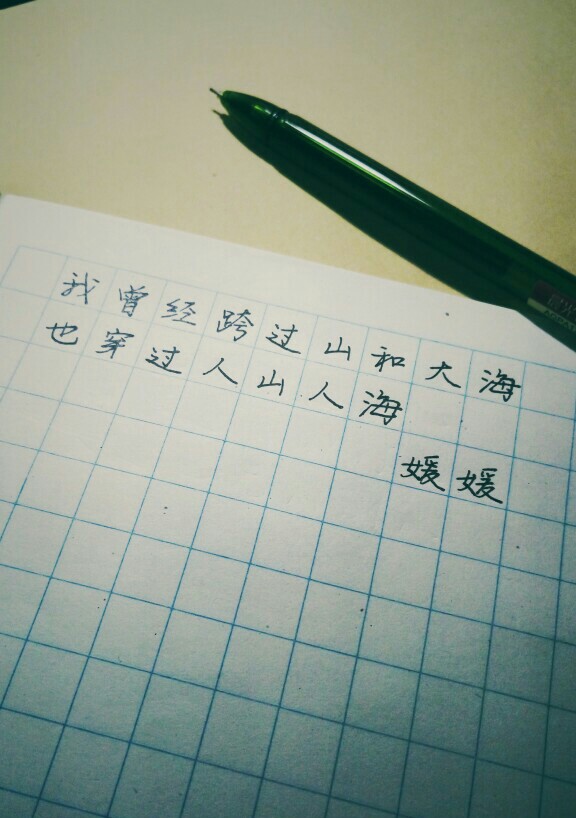 我曾经跨过山和大海
也穿过人山人海
媛媛